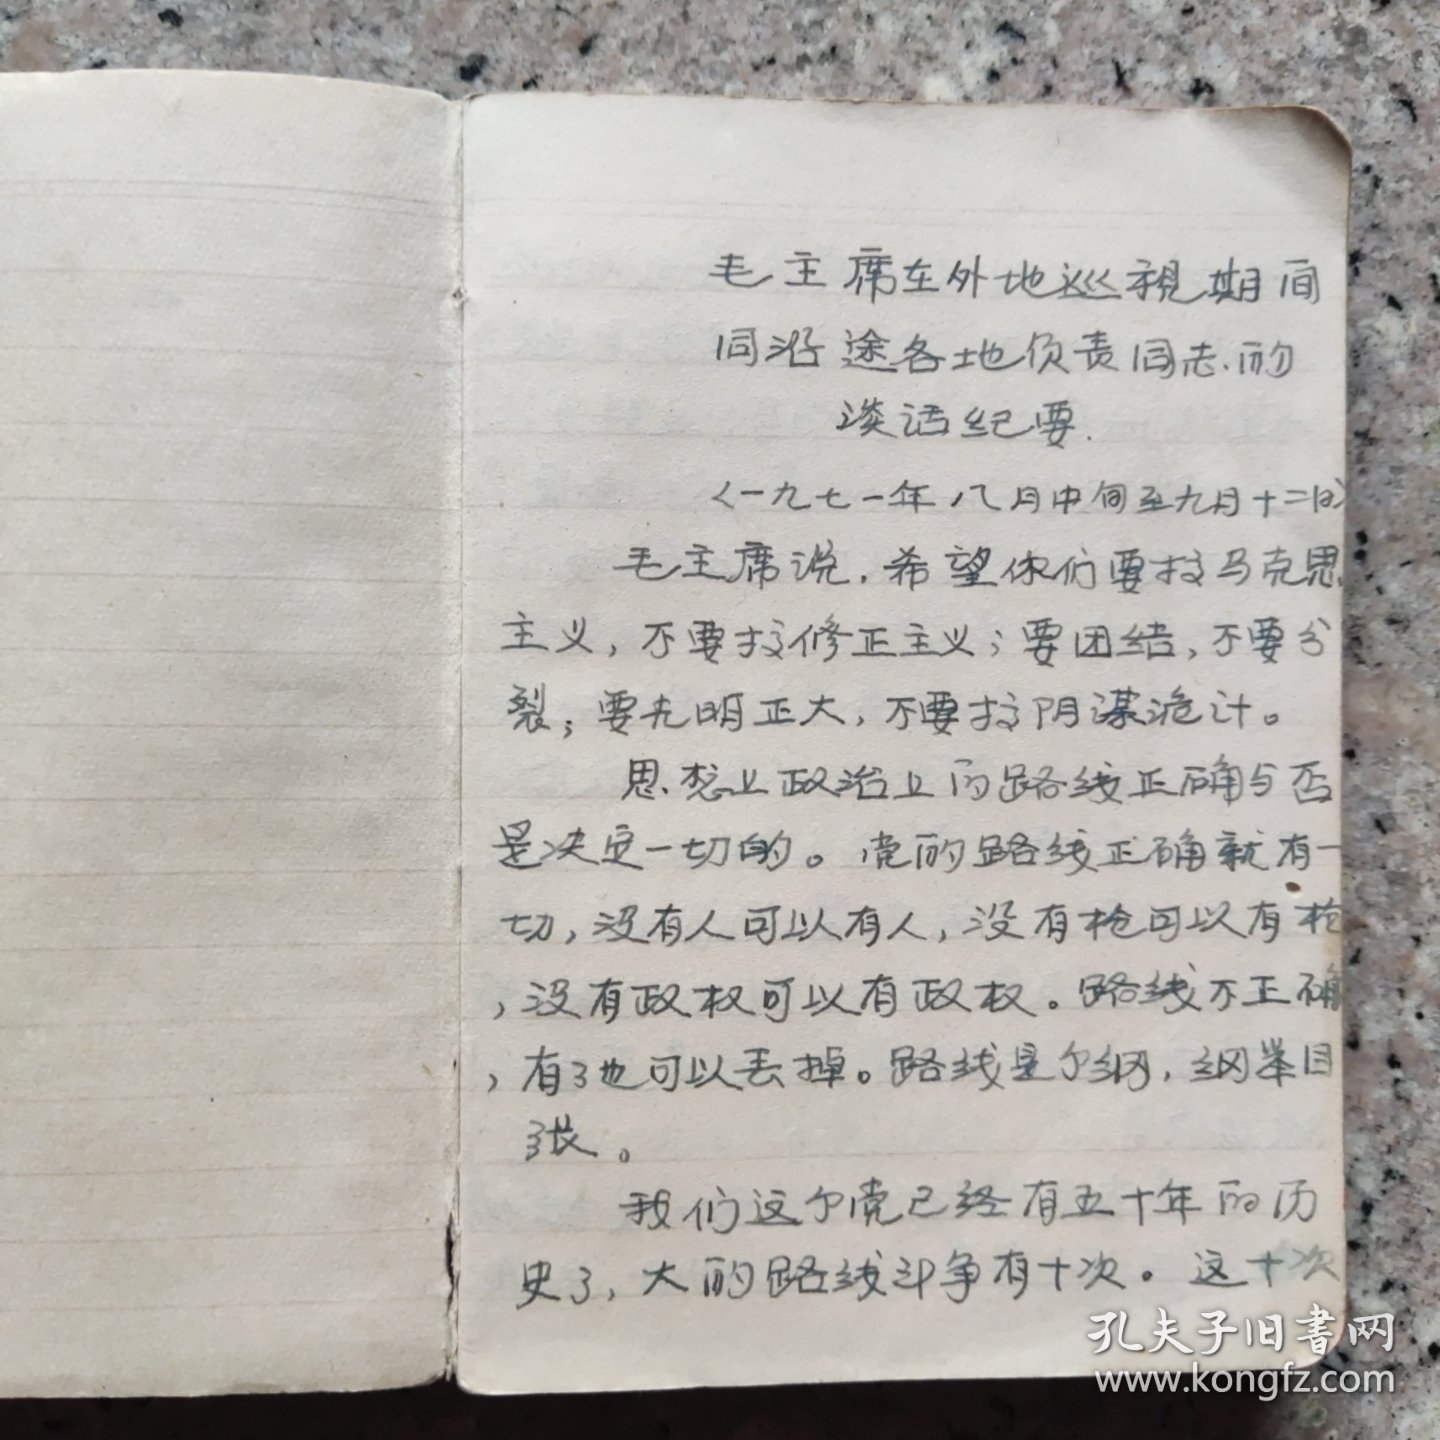 毛主席在外地巡视期间
同沿途各地负责同志的
谈话纪要.
(一九七一年八月中旬至九月十二日)
毛主席说,希望你们要搞马克思
主义,不要搞修正主义;要团结,不要分
裂;要光明正大,不要搞阴谋诡计。
思想上政治上的路线正确与否
是决定一切的。党的路线正确就有一
切,没有人可以有人,没有枪可以有枪
,没有政权可以有政权。路线不正确
,有了也可以丢掉。路线是个纲,纲举目
张。
我们这个党已经有五十年的历
史了,大的路线斗争有十次。这十次
孔夫子旧书网
www.kongfz.com